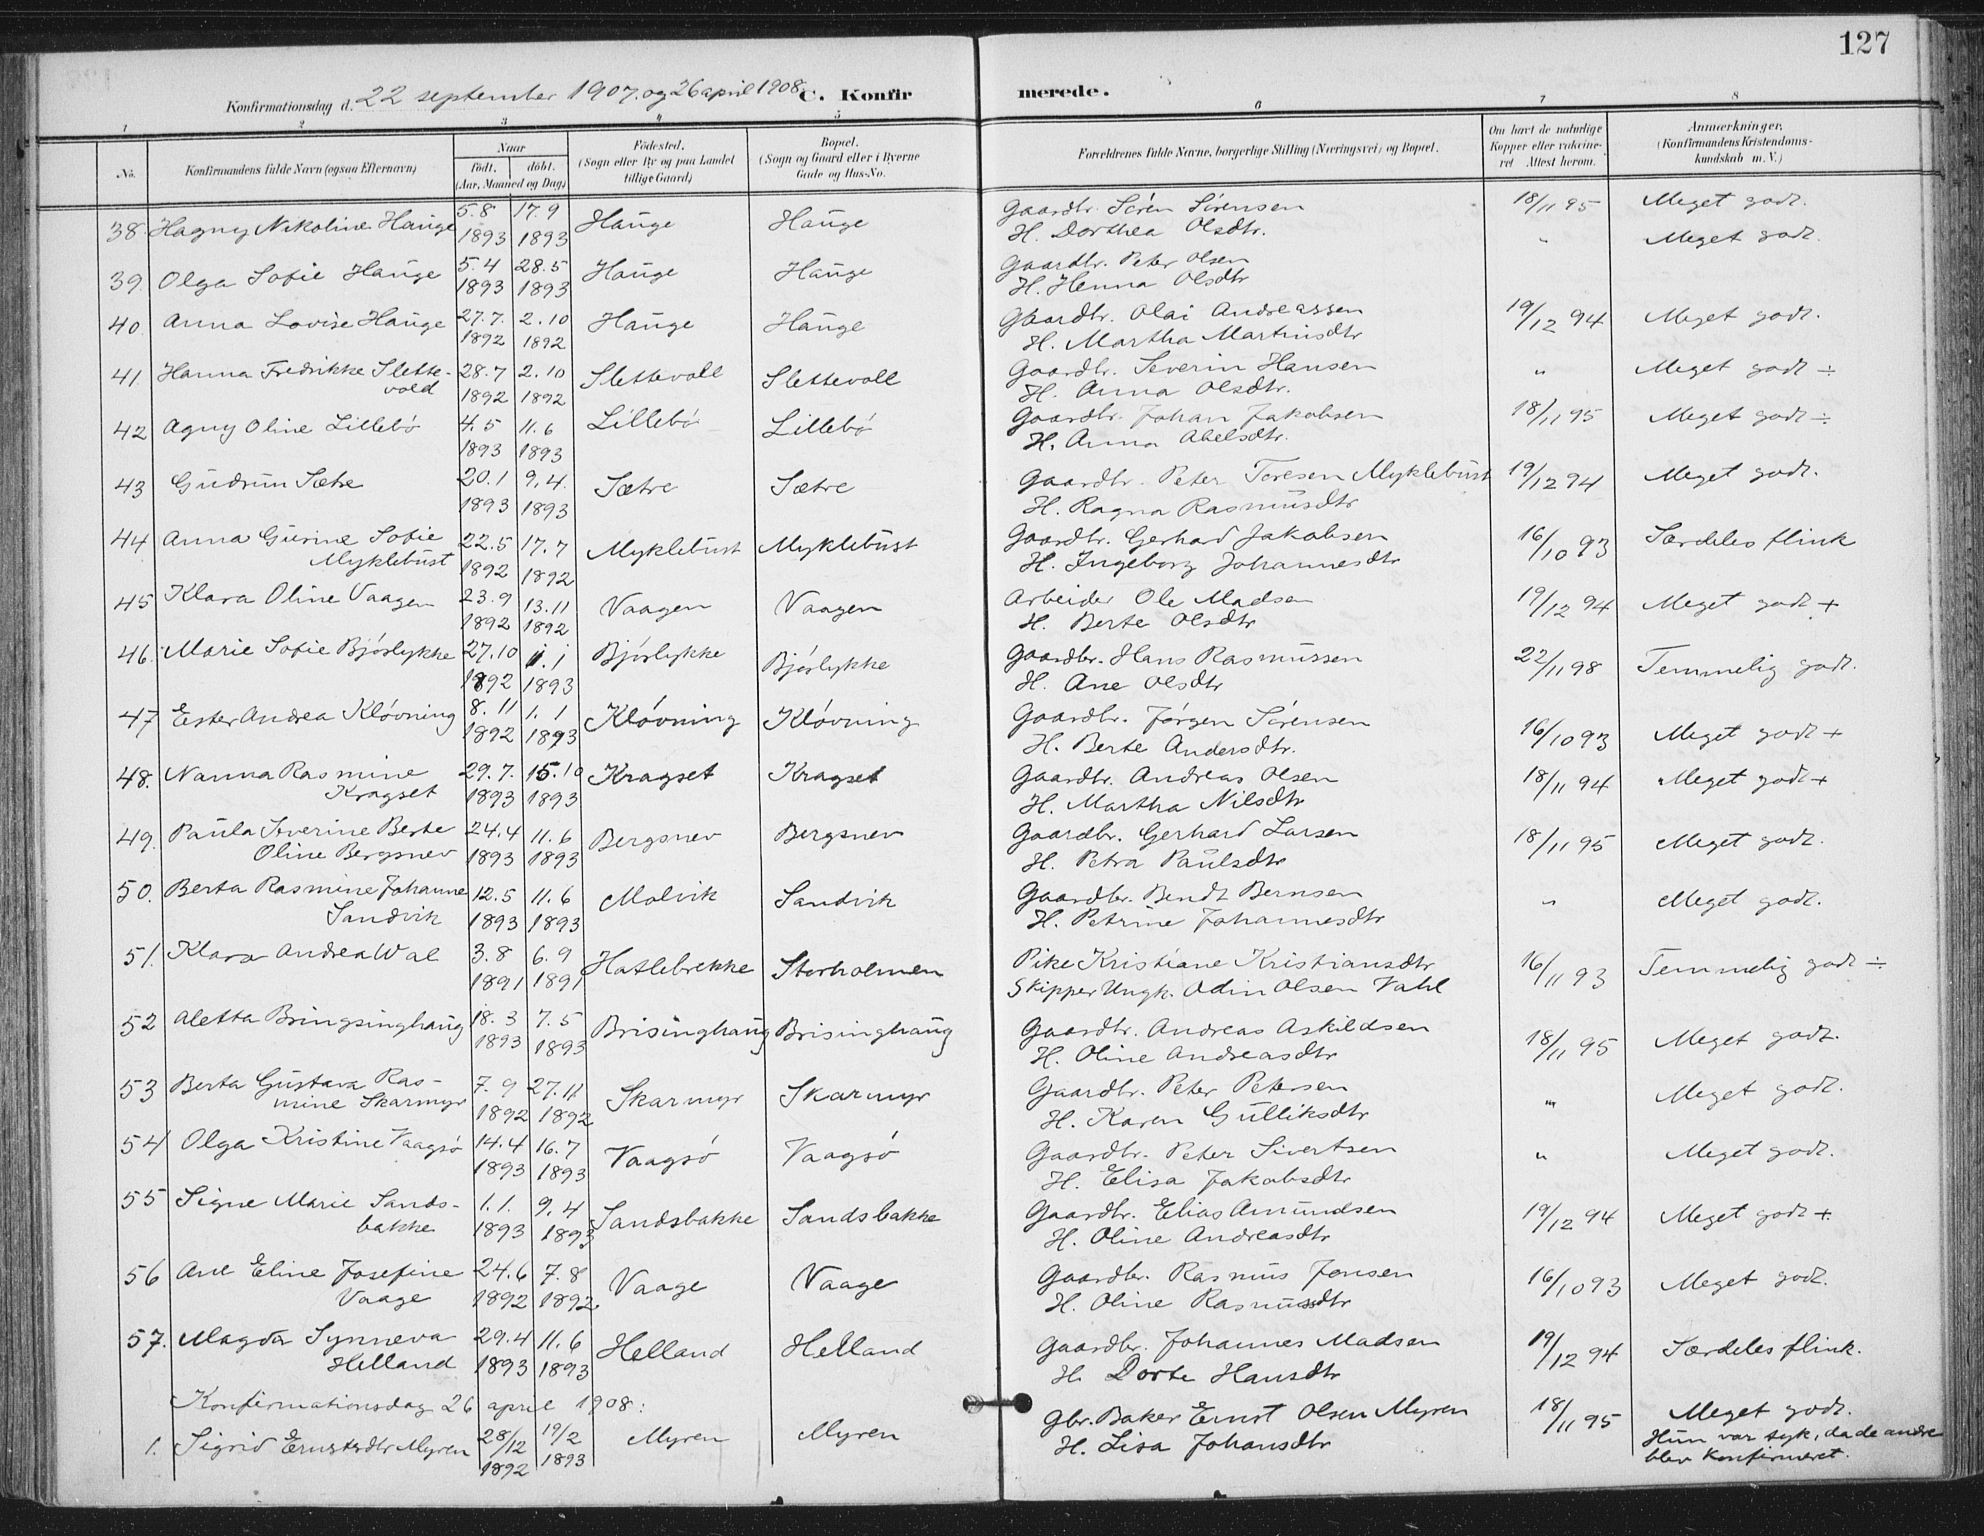 127
Konfirmationsdag d. 22 september 1907. og 26 april 1908. C. Konfirmerede.
1 2 3 4 5 6 7 8
No. Konfirmandens fulde Navn (ogsaa Efternavn)
Naar
født. døbt.
(Aar, Maaned og Dag)
Fødested.
(Sogn eller By og paa Landet
tillige Gaard)
Bopæl.
(Sogn og Gaard eller i Byerne
Gade og Hus-No.
Forældrenes fulde Navne, borgerlige Stilling (Næringsvei) og Bopæl.
Om havt de naturlige
Kopper eller vakcine-
ret Attest herom.
Anmærkninger.
(Konfirmandens Kristendoms-
kundskab m. V.)
38. Hagny Nikoline Hauge 5.8 1893 17.9 1893 Hauge Hauge Gaardbr. Søren Sørensen 18/11 95 Meget godt.
H. Dorthea Olsdtr. " Meget godt.
39 Olga Sofie Hauge 5.4 1893 28.5 1893 Hauge Hauge Gaardbr. Peter Olsen
H. Henna Olsdtr
40 Anna Lovise Hauge 27.7. 1892 2.10 1892 Hauge Hauge Gaardbr. Olai Andreassen 19/12 94 Meget godt.
H. Martha Martinsdtr
41 Hanna Fredrikke Slette- 28.7 1892 2.10 1892 Slettevoll Slettevoll Gaardbr. Severin Hansen " Meget godt ÷
vold H. Anna Olsdtr.
42 Agny Oline Lillebø 4.5 1893 11.6 1893 Lillebø Lillebø Gaardbr. Johan Jakobsen 18/11 95 Meget godt ÷
H. Anna Abelsdtr.
43 Gudrun Sætre 20.1 1893 9.4. 1893 Sætre Sætre Gaardbr. Peter Toresen Myklebust 19/12 94 Meget godt.
H. Ragna Rasmusdtr
44 Anna Gurine Sofie 22.5 1892 17.7 1892 Myklebust Myklebust Gaardbr. Gerhard Jakobsen 16/10 93 Særdeles flink
Myklebust H. Ingeborg Johannesdtr
45 Klara Oline Vaagen 23.9 1892 13.11 1892 Vaagen Vaagen Arbeider Ole Madsen 19/12 94 Meget godt +
H. Berte Olsdtr
46. Marie Sofie Bjørlykke 27.10 1892 1.1 1893 Bjørlykke Bjørlykke Gaardbr. Hans Rasmussen 22/11 98 Temmelig godt.
H. Ane Olsdtr
47 Ester Andrea Kløvning 8.11 1892 1.1 1893 Kløvning Kløvning Gaardbr. Jørgen Sørensen 16/10 93 Meget godt +
H. Berte Andersdtr.
48. Nanna Rasmine 29.7. 1893 15.10 1893 Kragset Kragset Gaardbr. Andreas Olsen 18/11 94 Meget godt +
Kragset H. Martha Nilsdtr
49. Paula Severine Berte 24.4 1893 11.6 1893 Bergsnev Bergsnev Gaardbr. Gerhard Larsen 18/11 95 Meget godt.
Oline Bergsnev H. Petra Paulsdtr
50. Berta Rasmine Johanne 12.5 1893 11.6 1893 Molvik Sandvik Gaardbr. Bendt Bernsen " Meget godt.
Sandvik H. Petrine Johannesdtr
51. Klara Andrea Wal 3.8 1891 6.9 1891 Hatlebrekke Storholmen Pike Kristiane Kristiansdtr 16/11 93 Temmelig godt ÷
Skipper Ungk. Odin Olsen Vahl
52 Aletta Bringsinghaug 18.3 1893 7.5 1893 Brisinghaug Brisinghaug Gaardbr. Andreas Askildsen 18/11 95 Meget godt.
H. Oline Andreasdtr
53 Berta Gustava Ras- 7.9 1892 27.11 1892 Skarmyr Skarmyr Gaardbr. Peter Petersen " Meget godt.
mine Skarmyr H. Karen Gulliksdtr
54 Olga Kristine Vaagsø 14.4 1893 16.7 1893 Vaagsø Vaagsø Gaardbr. Peter Sivertsen " Meget godt.
H. Elisa Jakobsdtr
55 Signe Marie Sands- 1.1. 1893 9.4 1893 Sandsbakke Sandsbakke Gaardbr. Elias Amundsen 19/12 94 Meget godt +.
bakke H. Oline Andreasdtr
56 Ane Eline Josefine 24.6 1892 7.8 1892. Vaage Vaage Gaardbr. Rasmus Jonsen 16/10 93 Meget godt.
Vaage H. Oline Rasmusdtr
57. Magda Synneva 29.4 1893 11.6 1893 Helland Helland Gaardbr. Johannes Madsen 19/12 94 Særdeles flink.
Helland H. Dorte Hansdtr
Konfirmationsdag 26 april 1908:
1. Sigrid Ernstsdtr Myren 28/12 1892 19/2 1893 Myren Myren Gbr. Baker Ernst Olsen Myren 18/11 95 Meget godt.
H. Lisa Johansdtr Hun var syk, da de andre
blev konfirmeret.